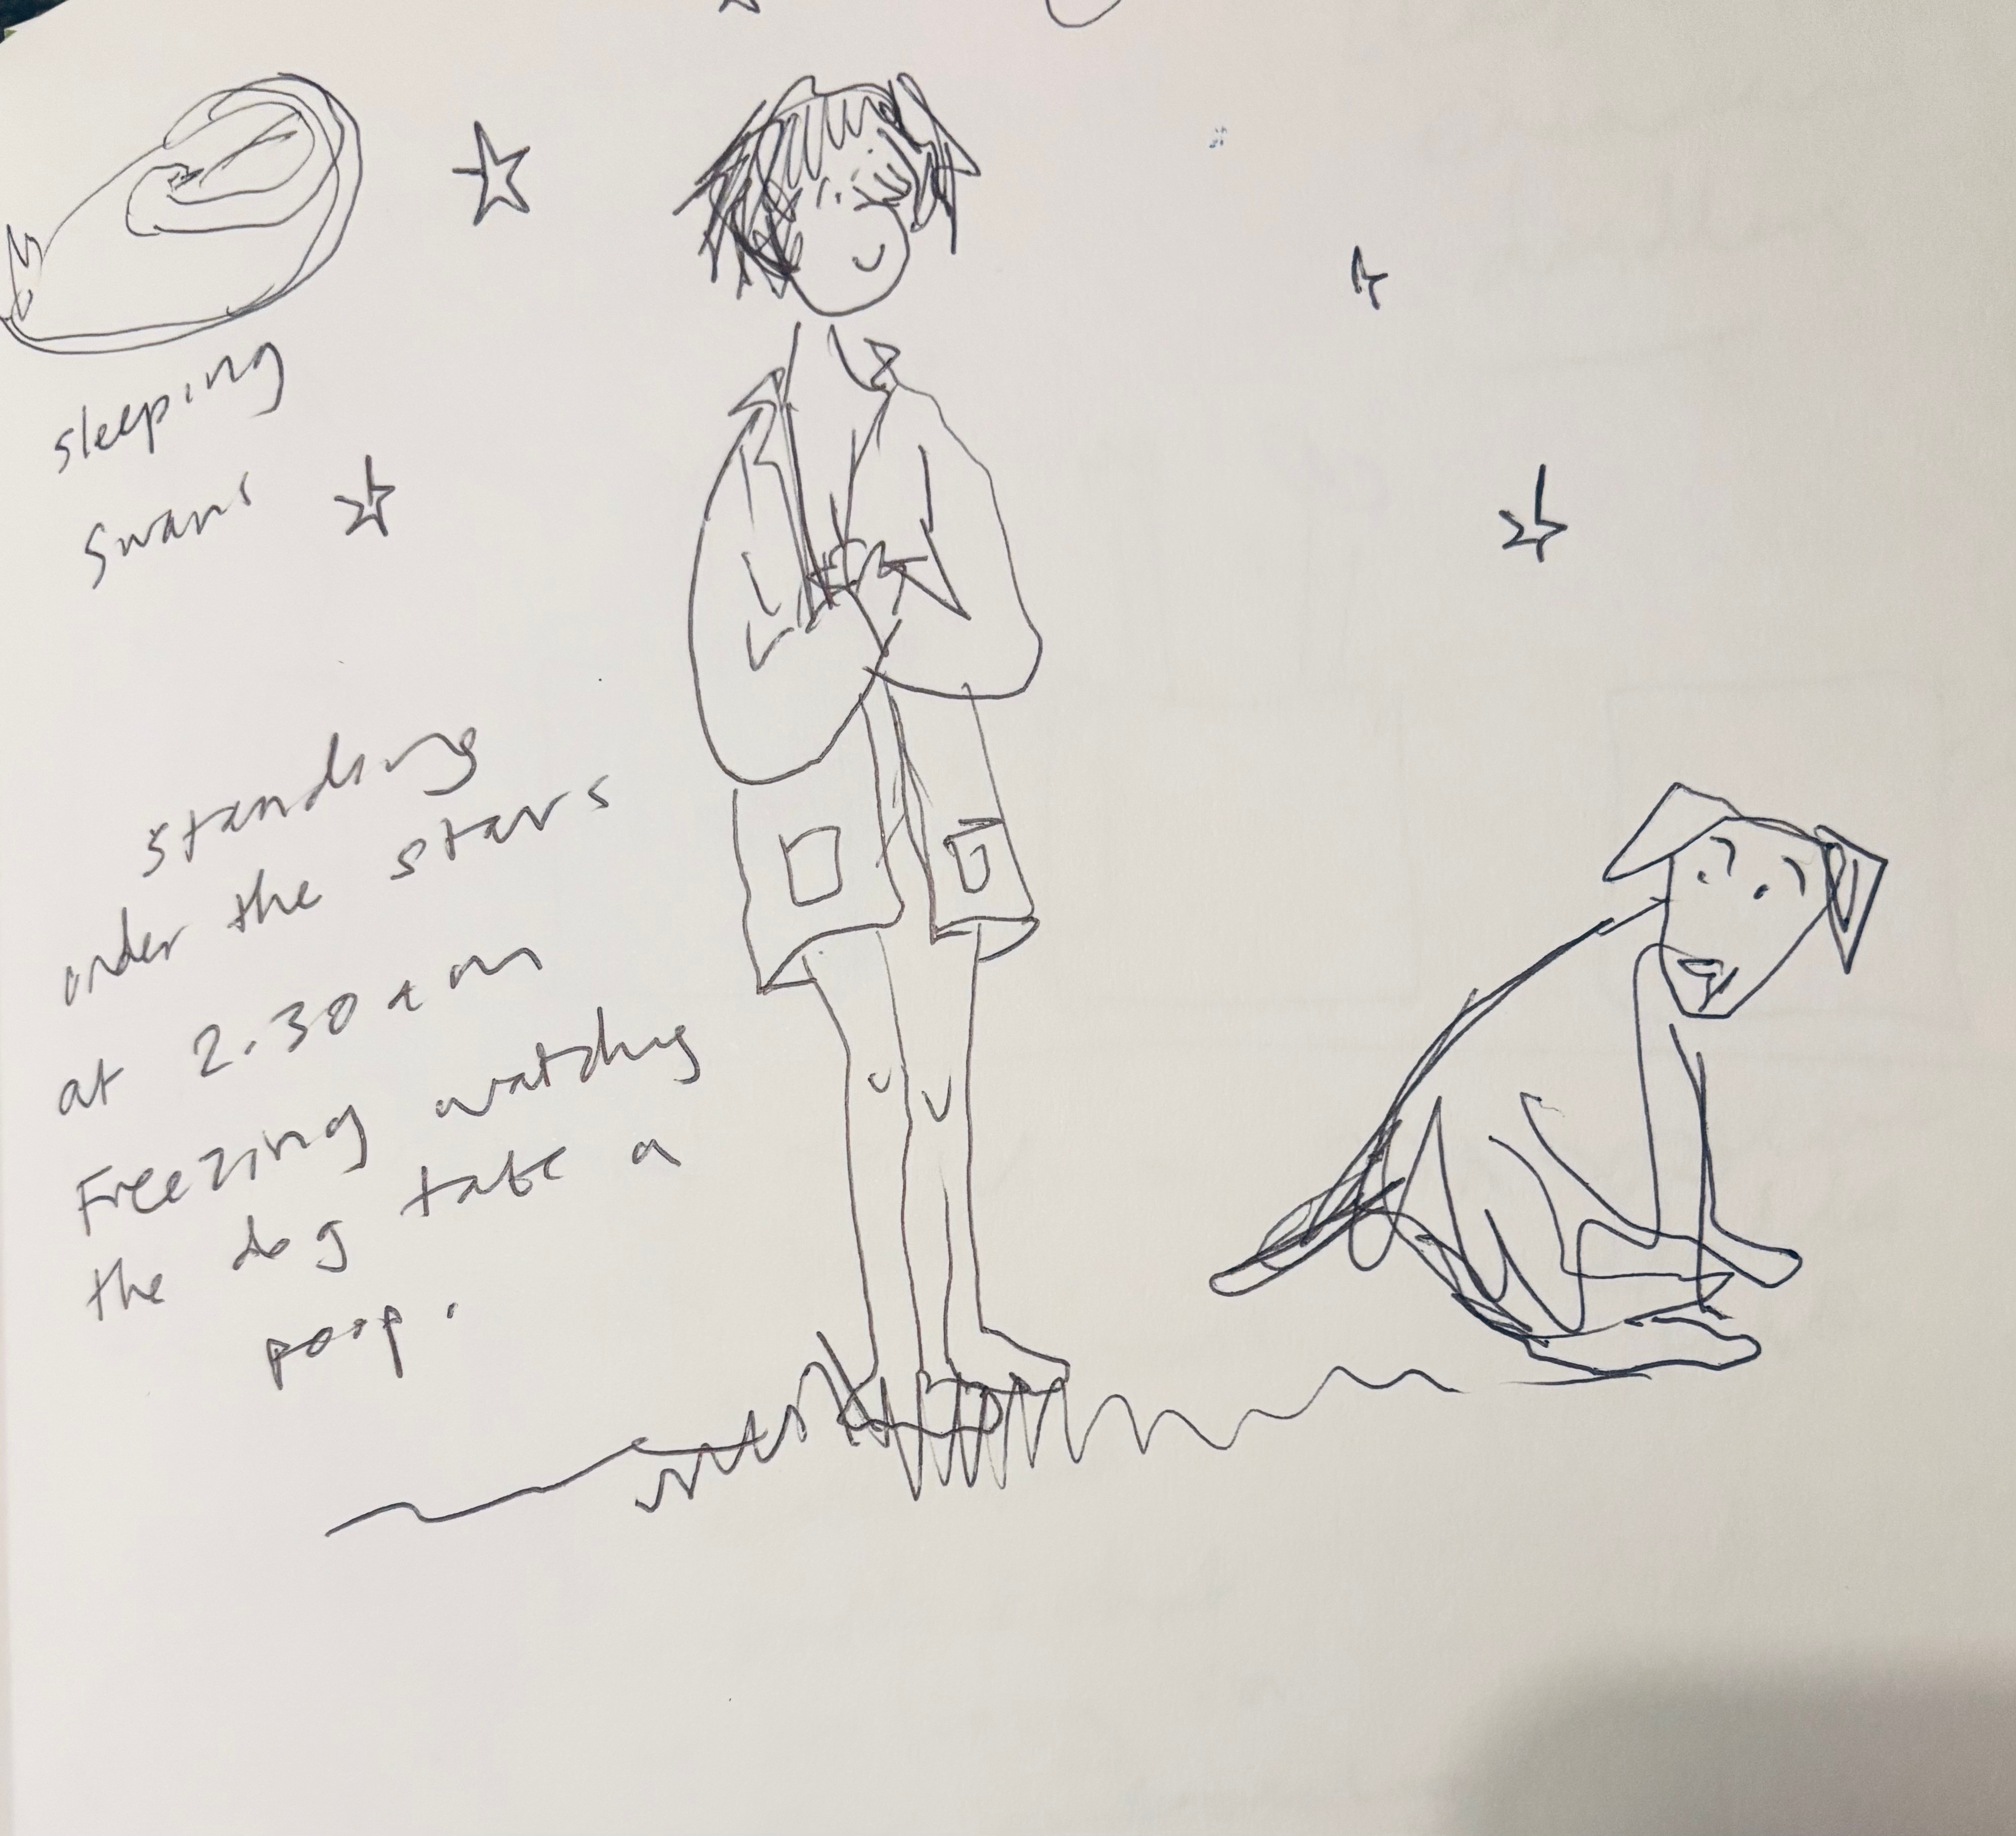 sleeping
swans
standing
under the stars
at 2.30 am
Freezing watching
the dog take a
poop.